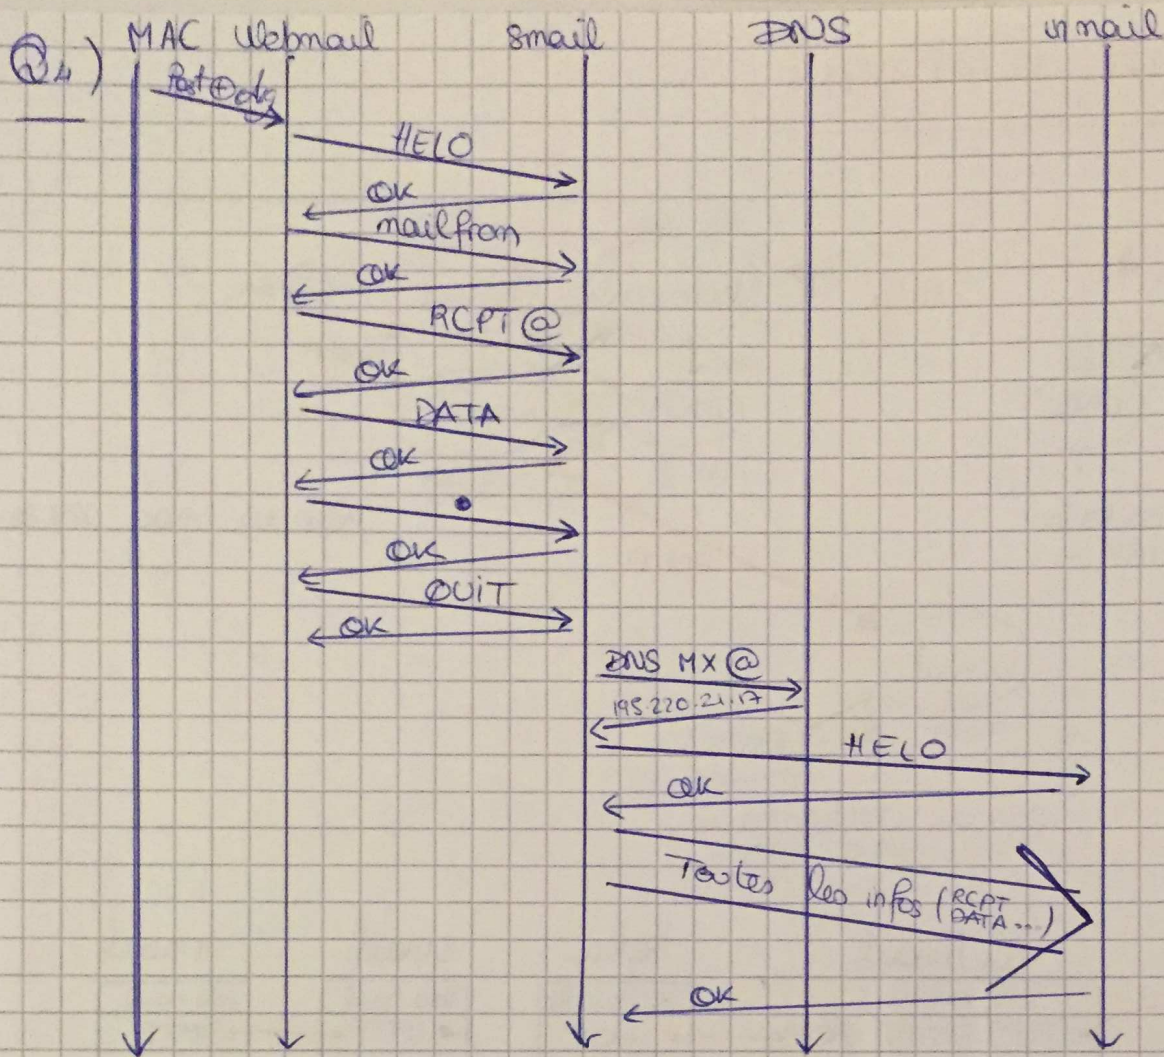 Q4) MAC Webmail smail DNS inmail
HELO
OK
mailfrom
OK
RCPT @
OK
DATA
OK
•
OK
QUIT
OK
DNS MX @
195.220.21.17
HELO
OK
Toutes les infos (RCPT
DATA...)
OK